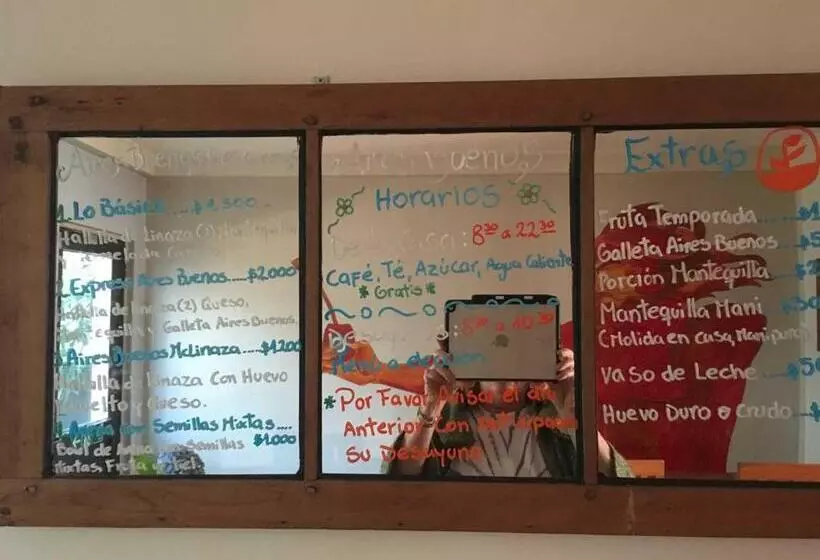 Aires Buenos
1. Lo Básico ..... $1.500
Hallulla de Linaza (1)
2. Express Aires Buenos ..... $2.000
de linaza (2) Queso,
y Galleta Aires Buenos.
3. Aires Buenos McLinaza ..... $1.200
Hallulla de Linaza Con Huevo
y Queso.
Semillas Mixtas ....
Bowl de Avena con Semillas $1.000
Mixtas, Fruta
Aires Buenos
Horarios
8³⁰ a 22³⁰
Café, Té, Azúcar, Agua Caliente
*Gratis*
8³⁰ a 10³⁰
Menú a elección
*Por Favor Avisar el día
Anterior Con Anticipación
Su Desayuno
Extras
Fruta Temporada
Galleta Aires Buenos
Porción Mantequilla
Mantequilla Mani
(Molida en casa, Mani puro)
Vaso de Leche
Huevo Duro o Crudo